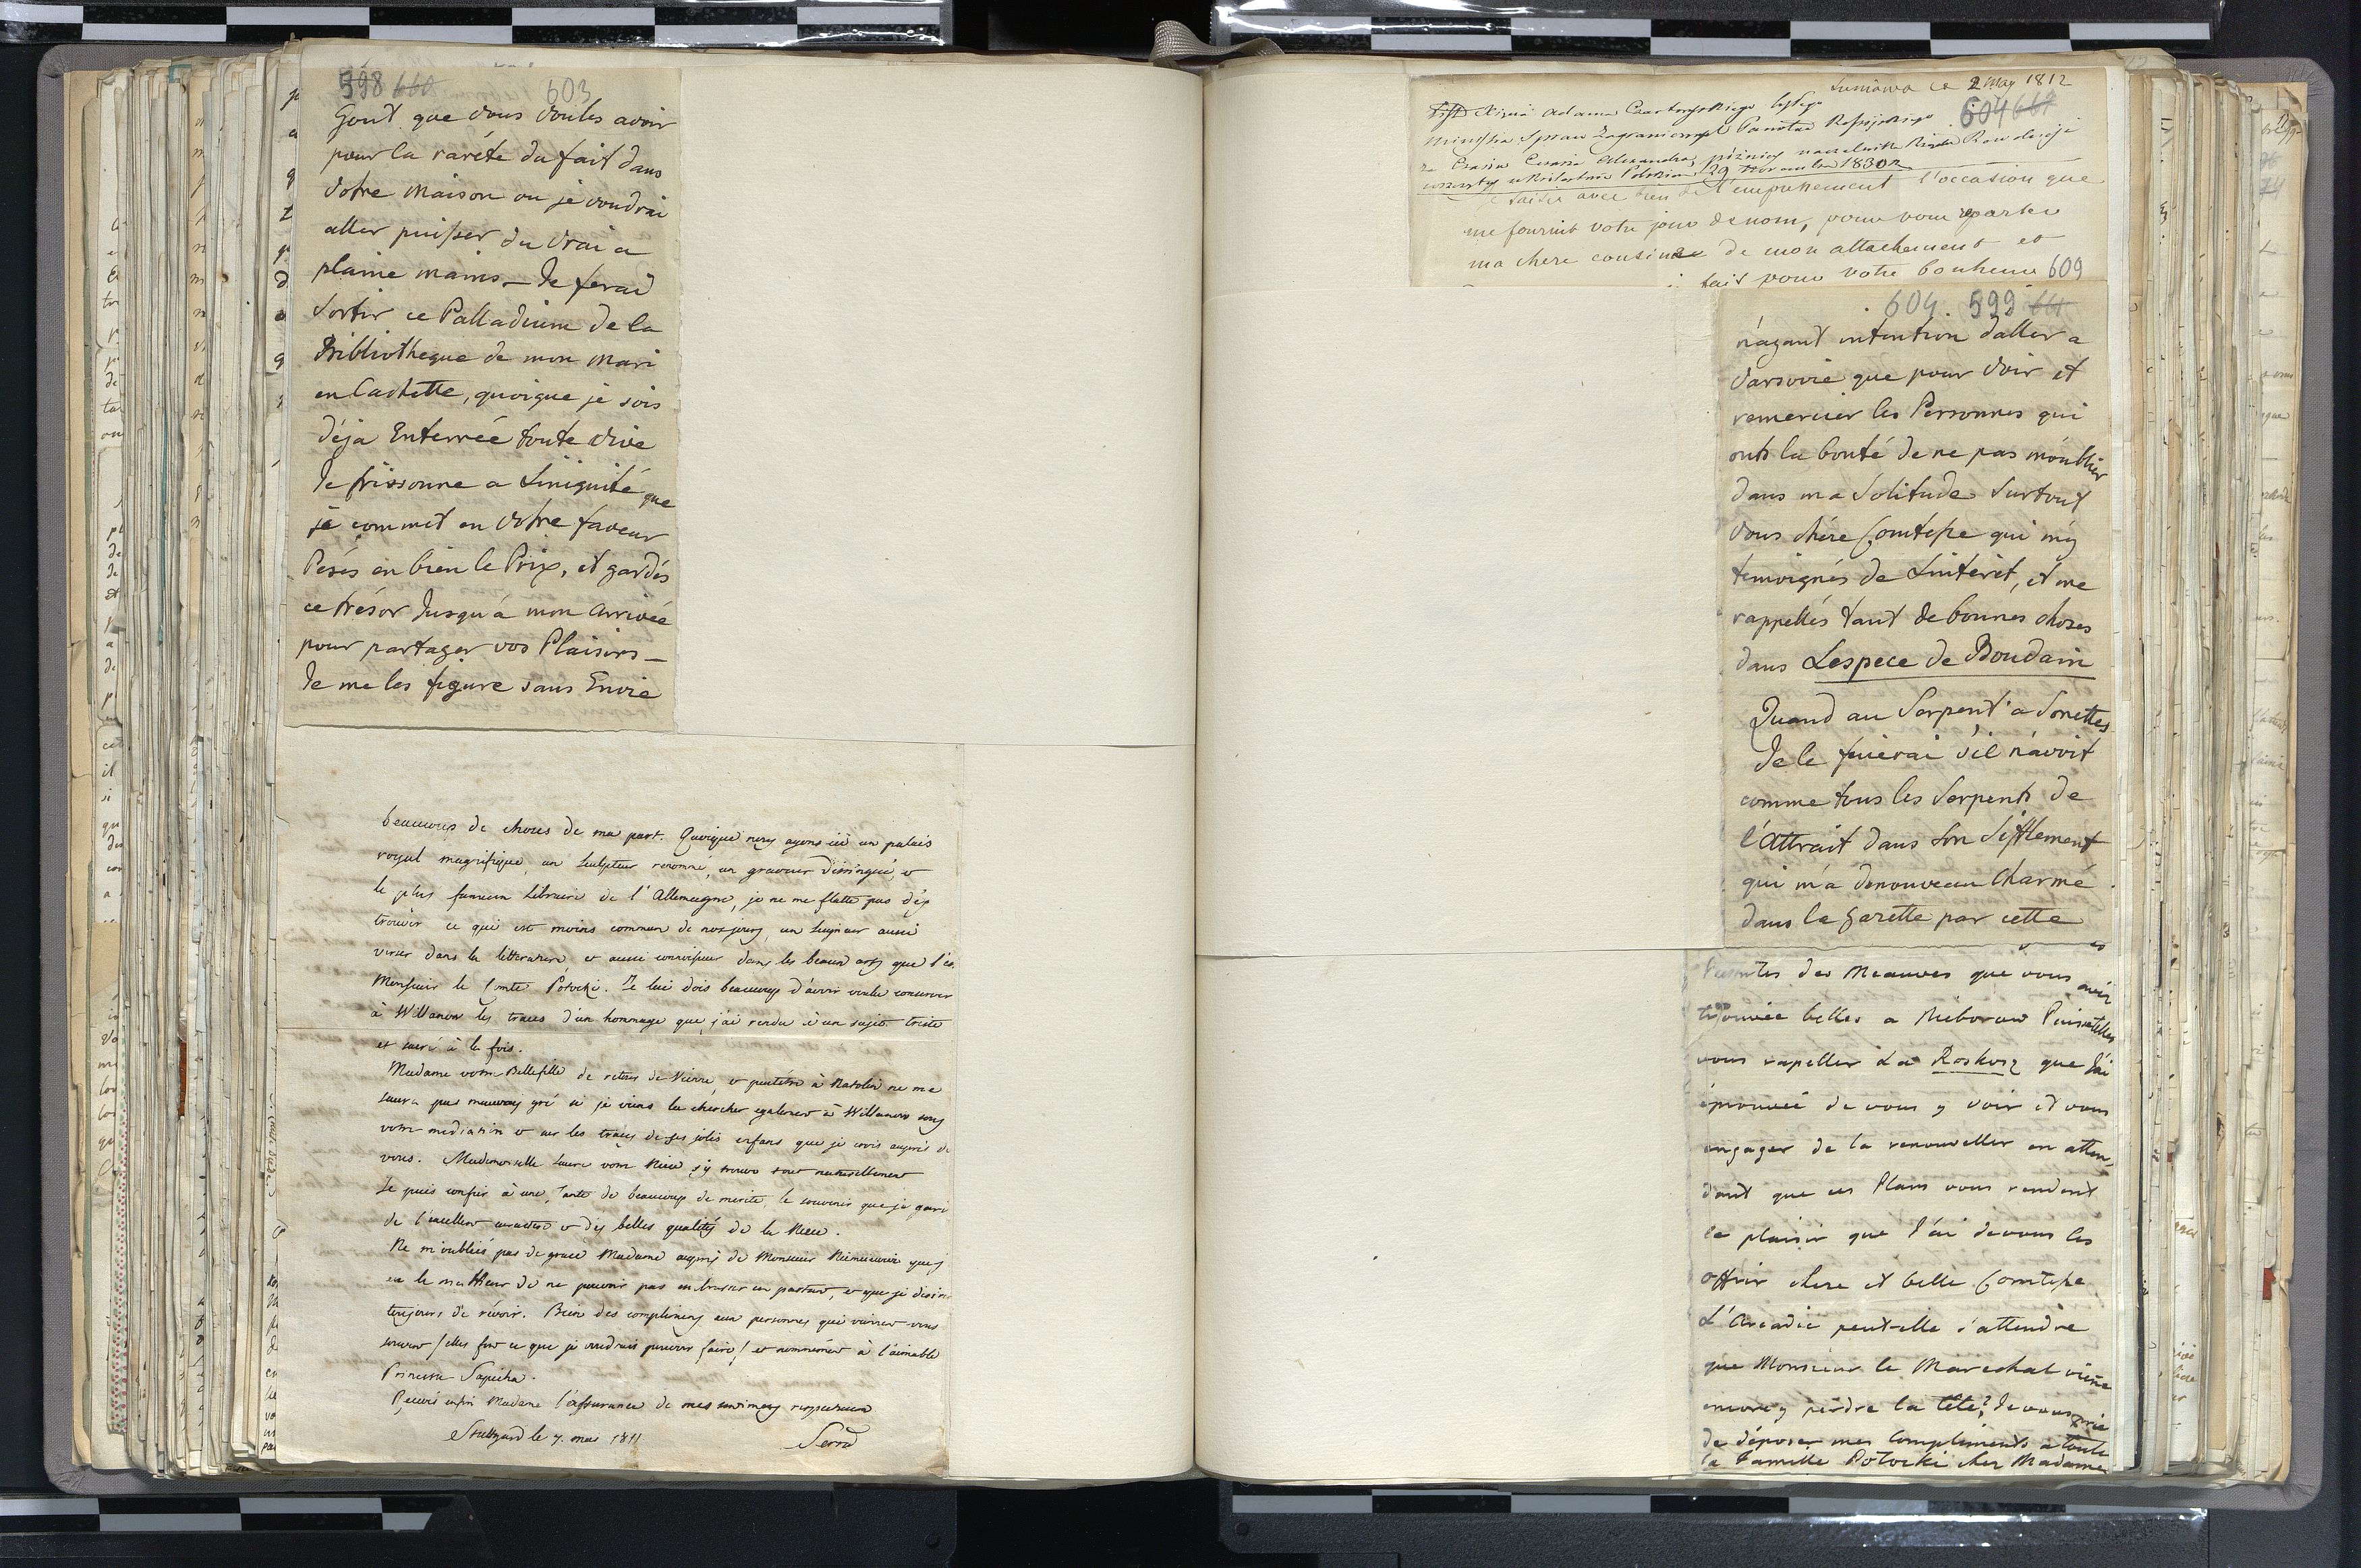 598 660 603
Gout que vous voulés avoir
pour la rareté du fait dans
votre maison ou je voudrai
aller puisser du vrai a
plaine mains_ Je ferai
Sortir ce Palladium de la
Bibliotheque de mon mari
en Cachette, quoique je sois
déja Enterrée toute vive
Je frissonne a Liniquité que
je commet en votre faveur
Pesés en bien le Prix, et gardés
ce trésor Jusqu'á mon arrivée
pour partager vos Plaisirs_
Je me les figure sans Envie
beaucoup de choses de ma part. Quoique nous ayons ici un palais
royal magnifique, un sculpteur renommé, un graveur distingué, et
le plus fameux Libraire de l'Allemagne, je ne me flatte pas d'y
trouver ce qui est moins commun de nos jours, un Seigneur aussi
versé dans la litterature et aussi connoisseur dans les beaux arts que l'est
Monsieur le Comte Potocki. Je lui dois beaucoup d'avoir voulu conserver
à Willanow les traces d'un hommage que j'ai rendu à un sujet triste
et sacré à la fois.
Madame votre Bellefille de retour de Vienne, et peutétre à Natolin ne me
saura pas mauvais gré si je viens la chercher egalement à Willanow sous
votre mediation et sur les traces de ses jolis enfans que je crois auprès de
vous. Mademoiselle Laure votre Niece s'y trouve tout naturellement
Je puis confier à une Tante de beaucoup de merite, le souvenir que je garde
de l'excellent caractere et des belles qualités de la Niece.
Ne m'oubliés pas de grace Madame auprès de Monsieur Niemcewicz que j
eu le malheur de ne pouvoir pas embrasser en partant, et que je desire
toujours de révoir. Bien des complimens aux personnes qui viennent vous
souvent / elles font ce que je voudrais pouvoir faire / et nommément à l'aimable
Princesse Sapieha.
Recevés enfin Madame l'assurance de mes sentimens respectueux
Stuttgard le 7. mai 1811 Serra
Luniowa ce 2 May 1812
604 661
List Xięcia Adama Czartoryskiego byłego
Ministra Spraw Zagranicznych Panstwa Rossyjskiego
za Czasów Cesarza Alexandra, później naczelnika Rządu Rewolucyi
wszczętej w Królestwie Polskiem 29 Novembra 1830 r
Je saisis avec bien de l'empressement l'occasion que
me fournit votre jour de nom, pour vous reparler
ma chere cousine de mon attachement et
fait pour votre bonheur 609
604. 599 661
n'ayant intention d'aller a
Varsovie que pour voir et
remercier les Personnes qui
onts la bonté de ne pas m'oublier
dans ma Solitude Surtout
vous chére Comtesse qui m'y
temoignés de Lintérét, et me
rappellés tant de bonnes choses
dans Lespece de Boudain
Quand au Serpent a Sonettes
Je le fuierai s'il n'avoit
comme tous les Serpents de
l'Attrait dans Son Sifflement
qui m'a denouveau Charmé
dans la Gazette par cette
des Meauves que vous avéz
trouvée belles a Nieborow Puissetelles
vous rapeller La Roskosz que J'ai
éprouvée de vous y voir et vous
engager de la renouveller en atten,
dant que ces Plans vous rendent
le plaisir que J'ai devous les
offrir chere et belle Comtesse
L'Arcadie peut-elle s'attendre
que Monsieur le Marechal vienne
encore y perdre la tete? Je vous prie
de déposer mes Compliments a toute
la Famille Potocki cher Madame